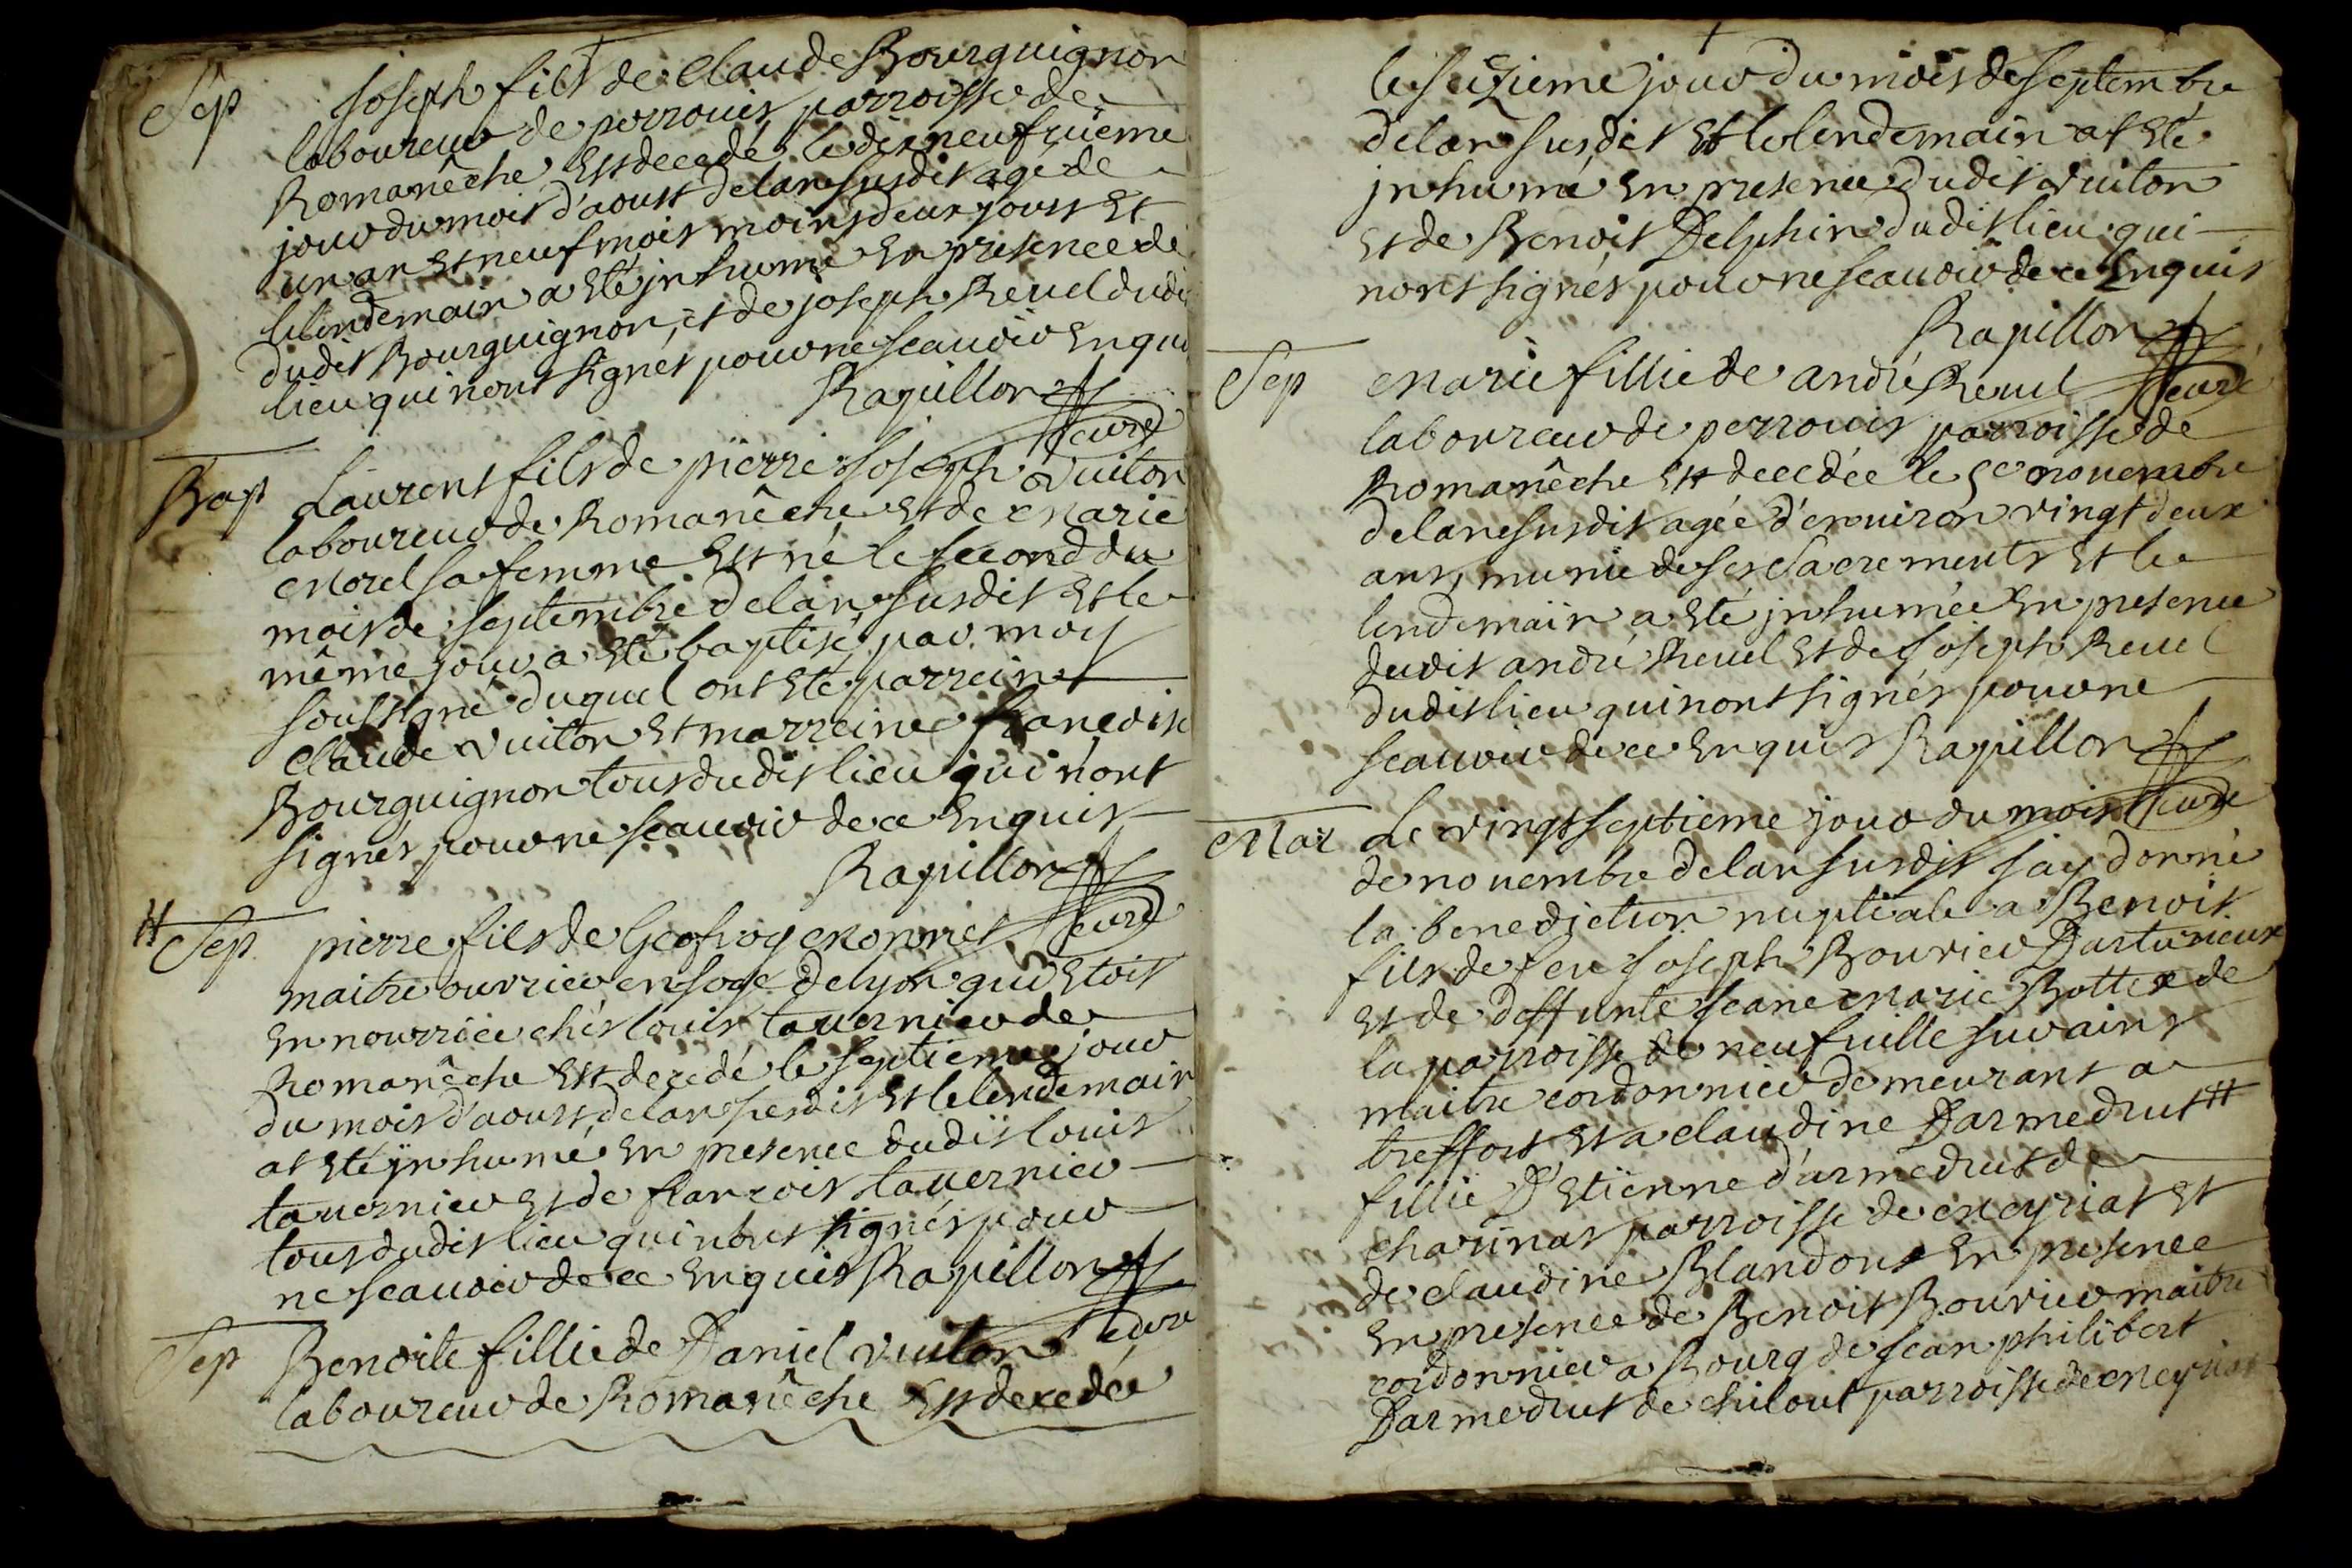 Sep Joseph fils de Claude Bourguignon
laboureur de perrouis parroisse de
Romanêche Est decedé le dix neufvieme
jour du mois d'aoust de lan susdit agé de
un an Et neuf mois moins deux jours Et
le lendemain a Eté jnhumé En presence de
dudit Bourguignon, et de joseph Revel dudit
lieu qui n'ont signés pour ne scauoir Enquis
Rapillon
curé
Bap Laurent fils de pierre Joseph Vuiton
laboureur de Romanêche Et de Marie
Morel sa femme Est né le second du
mois de septembre de lan susdit Et le
même jour a Eté baptisé par moy
soussigné duquel ont Eté parrein
Claude Vuiton Et marreine françoise
Bourguignon tous dudit lieu qui n'ont
signés pour ne scauoir de ce Enquis
Rapillon
curé
# Sep pierre fils de Geofroy Monnet
maitre ouvrier en soye de lyon qui Etoit
En nourrice chés louis tauernier de
Romanêche Est decedé le septieme jour
du mois d'aoust de lan susdit Et le lendemain
at Eté jnhumé En presence dudit louis
tauernier Et de francois tauernier
tous dudit lieu qui n'ont signés pour
ne scauoir de ce Enquis Rapillon
curé
Sep Benoite fillie de Daniel Vuiton
laboureur de Romanêche Est decedée
le sizieme jour du mois de septembre
de lan susdit Et le lendemain at Eté
jnhumé En presence dudit Vuiton
Et de Benoit Delphin dudit lieu qui
n'ont signés pour ne scauoir de ce Enquis
Rapillon
curé
Sep Marie fillie de andré Revel
laboureur de perrouis parroisse de
Romanêche Est decedée le 5e nouembre
de lan susdit agée d'enuiron vingt deux
ans, munie de ses Sacrements Et le
lendemain a Eté jnhumée En presence
dudit andré Revel Et de Joseph Revel
dudit lieu qui n'ont signés pour ne
scauoir de ce Enquis Rapillon
curé
Mar Le vingt septieme jour du mois
de nouembre de lan susdit jay donné
la benediction nuptiale a Benoit
fils de feu Joseph Bouvier
Et de deffunte Jeane Marie Bottex de
la parroisse de neufuille sur ains
maitre cordonnier demeurant a
treffort Et a claudine Darmedrut #
fillie D'Etienne d'armedrut de
Charinas parroisse de Meyriat Et
de claudine Blandont En presence
En presence de Benoit Bouvier maitre
cordonnier a Bourg de Jean philibert
Darmedrut de chilout parroisse de Meyriat